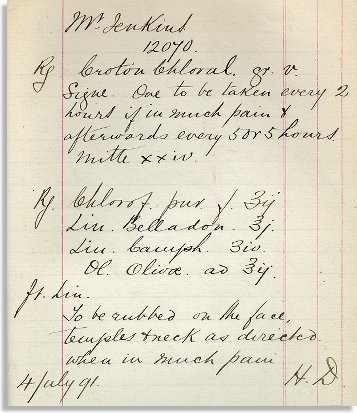 Mr Jenkins
12070.
Rx Croton Chloral. gr. v.
Signe. One to be taken every 2
hours if in much pain &
afterwards every 5 or 5 hours
Mitte xxiv.
Rx Chlorof. pur ʒij
Lin. Belladon. ʒj.
Lin. Camph. ʒiv.
Ol. Olivæ ad ʒij.
ft. Lin.
To be rubbed on the face,
temples & neck as directed
when in much pain
4 July 91. H. D.